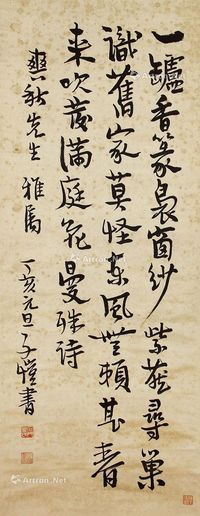 一罏香篆裊窗紗紫燕尋巢
識舊家莫怪東風無賴甚春
来吹發滿庭花曼殊詩
爽秋先生雅屬
丁亥元旦子愷書
Artron.Net
Artron.Net
Artron.Net